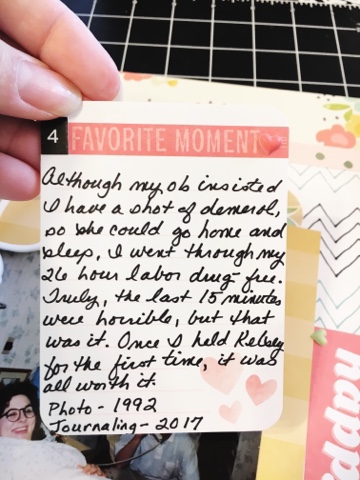 4 FAVORITE MOMENT
Although my ob insisted
I have a shot of demerol,
so she could go home and
sleep, I went through my
26 hour labor drug-free.
Truly, the last 15 minutes
were horrible, but that
was it. Once I held Kelsey
for the first time, it was
all worth it.
Photo - 1992
Journaling - 2017
happy